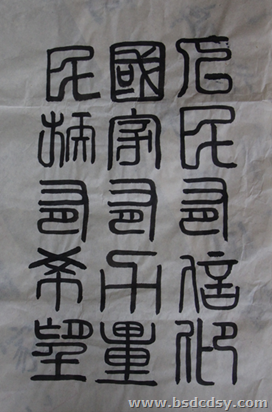 民有信仰
國家有力量
民族有希望
www.bsdcdsy.com